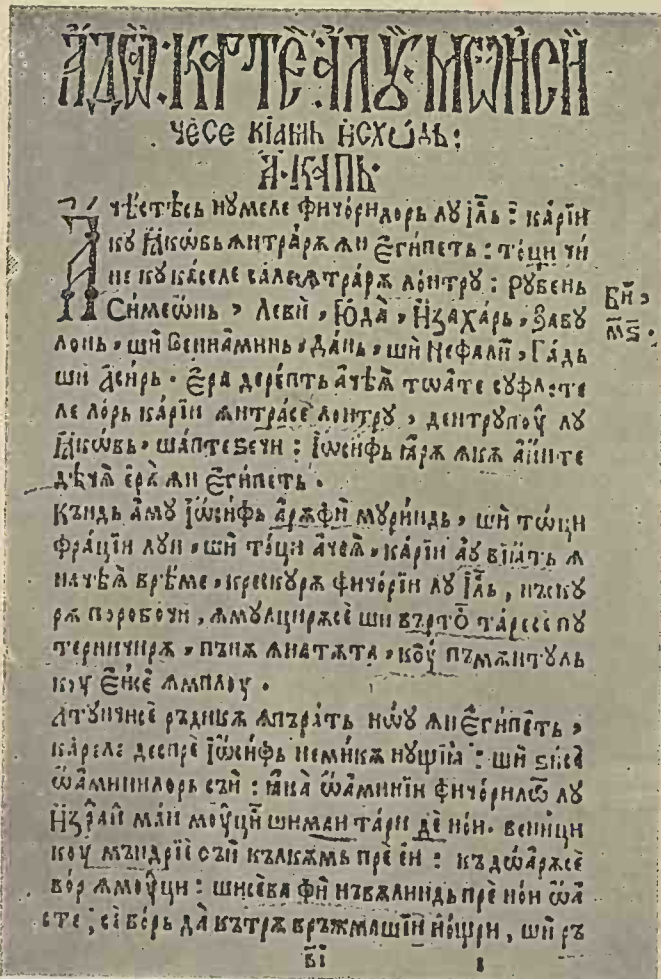 А҆ДѠ҆: КАРТЕ҆: А҆ЛꙊ МѠѶСІИ
ЧЕ҆СЕ КІАМЬ И҆СХѠ́ДЬ:
А҃. КАПЬ·
А҆чѣстѣсь нꙋмеле фичо́рилорь лꙋ І҆и҃ль : ка́рїи
кꙋ Ꙗ҆ковь ꙟнтра́рѫ ꙟн Є҆гѵпеть : то́ци чи
не кꙋ ка́селе сале ꙟнтра́рѫ лꙋнтрꙋ : Рꙋвень
Симеѡ́нь , Леви , Ю҆да , И҆заха́рь , Завꙋ
лонь , ши Веннами́нь , Да́нь , ши Нефали , Га́дь
ши А҆сирь . Є҆ра дере́пть ачѣѧ тѡа́те сꙋфлете
ле лорь ка́рїи ꙟнтра́се лонтрꙋ , дентрꙋпоу лꙋ
Ꙗ҆ковь , ша́пте ѕечи : І҆ѡсифь ꙗрѫ ꙟкѫ аин те
дѣчѧ ера ꙟн Є҆гѵпеть .
Къндь амꙋ І҆ѡсифь арѫ фи мꙋри́ндь , ши тѡ́ци
фра́ции лꙋи , ши то́ци ачеѧ , ка́рїи аꙋ вїа́ть ꙟ
начѣѧ врѣме , крескꙋрѫ фичо́рїи лꙋ І҆и҃ль , нъскꙋ
рѫ поробочи , ꙟмꙋлцирѫсе ши въртѡ́ та́ресе пꙋ
терничирѫ , пънѫ ꙟната́та , коу пъмѫнтꙋль
коу Є҆исе ꙟмплоу .
Атꙋнчисе ръдикѫ ꙟпъра́ть ноꙋ ꙟн Є҆гѵпеть ,
ка́реле деспре І҆ѡсифь немикѫ нꙋ щїа : ши ѕисе
ѡа́менилорь съи : ꙗка ѡа́менїи фичо́рилѡ лꙋ
И҆зраи́л ма́и моу́ци ши ма́и та́ри де́ нои . вени́ци
коу мъндрїе съи кълкѫмь пре еи : къ доа́рѫсе
во́р ꙟмоу́ци : шисева фи нъвѫли́ндь пре нои ѡа́
сте , се во́рь да кътрѫ връжмашїи но́щри , ши ръ
б҃и,
м҃ѕ.
в҃і